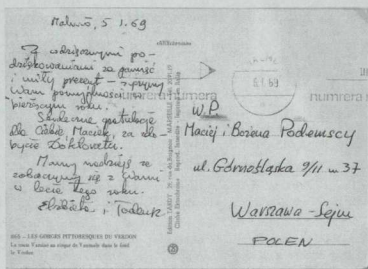 Malmö, 5.1.69
Z wdzięcznymi po-
dziękowaniami za pamięć
i miły prezent – życzymy
Wam pomyślności w
bieżącym roku.
Serdeczne gratulacje
dla Ciebie Macieju, za zdo-
bycie Doktoratu.
Mamy nadzieję że
zobaczymy się z Wami
w lecie tego roku.
Elżbieta i
665 - LES GORGES PITTORESQUES DU VERDON
le Verdon
5.1.69
numrera
numrera
W.P.
Maciej i Bożena Podemscy
ul. Górnośląska 9/11 m 37
Warszawa - Sejm
POLEN